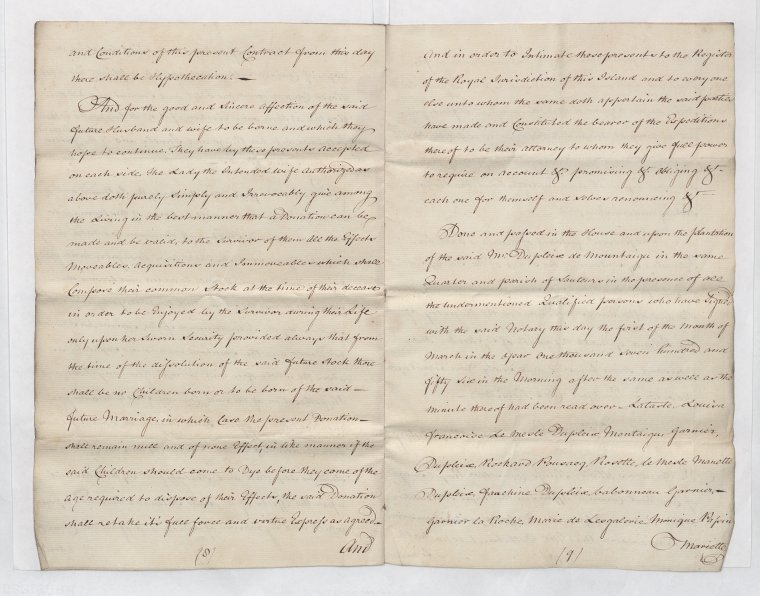 and Conditions of this present Contract from this day
there shall be Hypothecation. —
And for the good and Sincere affection of the said
future Husband and wife to be borne and which they
hope to continue. They have by these presents accepted
on each side, The Lady the Intended wife Authorized as
above doth purely Simply and Irrevocably give among
the Living in the best manner that a Donation can be
made and be valid, to the Survivor of them All the Effects
Moveables, Acquisitions and Immoveables which shall
Compose their common Stock at the time of their decease
in order to be Enjoyed by the Survivor during their Life
only upon her Sworn Security provided always that from
the time of the dissolution of the said future Stock there
shall be no Children born or to be born of the said —
future Marriage, in which Case the present Donation —
shall remain null and of none Effect, in like manner if the
said Children should come to Dye before they come of the
age required to dispose of their Effects, the said Donation
shall retake it's full force and virtue Express as agreed —
And
And in order to Intimate these presents to the Register
of the Royal Jurisdiction of this Island and to every one
else unto whom the same doth appertain the said parties
have made and Constituted the bearer of the Expeditions
thereof to be their attorney to whom they give full power
to require on account &c promising &c obliging &c —
each one for himself and Selves renouncing &c
Done and passed in the House and upon the plantation
of the said Mr. Dupleix de Mountaigu in the same
Quarter and parish of Sauteurs in the presence of all
the undermentioned Qualified persons who have Signed
with the said Notary this day the first of the Month of
March in the Year One thousand Seven hundred and
fifty Six in the Morning after the same as well as the
minute thereof had been read over — Lataste. Louisa
francoise Le Mesle Dupleix Montaigu Garnier,
Dupleix, Rochard Le Mesle Manette
Dupleix, Dupleix, babonneau Garnier, —
Garnier la Roche, Marie de Monique
Mariette
(9)